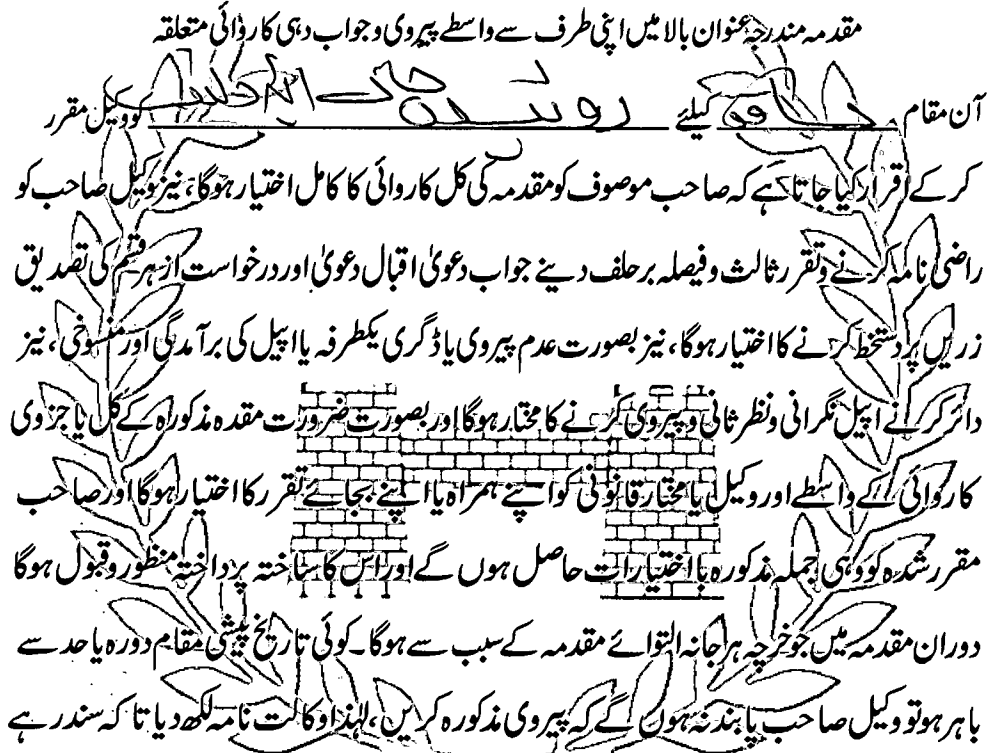 مقدمہ مندرجہ عنوان بالا میں اپنی طرف سے واسطے پیروی و جواب دہی کاروائی متعلقہ
آن مقام کیلئے کو وکیل مقرر
کر کے اقرار کیا جاتا ہے کہ صاحب موصوف کو مقدمہ کی کل کاروائی کا کامل اختیار ہوگا، نیز وکیل صاحب کو
راضی نامہ کرنے و تقرر ثالث و فیصلہ بر حلف دینے جواب دعویٰ اقبال دعویٰ اور درخواست از ہر قسم کی تصدیق
زریں پر دستخط کرنے کا اختیار ہوگا، نیز بصورت عدم پیروی یا ڈگری یکطرفہ یا اپیل کی برآمدگی اور منسوخی، نیز
دائر کرنے اپیل نگرانی و نظر ثانی و پیروی کرنے کا مختار ہوگا اور بصورت ضرورت مقدہ مذکورہ کے کل یا جزوی
کاروائی کے واسطے اور وکیل یا مختار قانونی کو اپنے ہمراہ یا اپنے بجائے تقرر کا اختیار ہوگا اور صاحب
مقرر شدہ کو وہی جملہ مذکورہ با اختیارات حاصل ہوں گے اور اس کا ساختہ پرداختہ منظور و قبول ہوگا
دوران مقدمہ میں جو خرچہ ہرجانہ التوائے مقدمہ کے سبب سے ہوگا۔ کوئی تاریخ پیشی مقام دورہ یا حد سے
باہر ہو تو وکیل صاحب پابند نہ ہوں گے کہ پیروی مذکورہ کریں، لہذا وکالت نامہ لکھ دیا تا کہ سند رہے